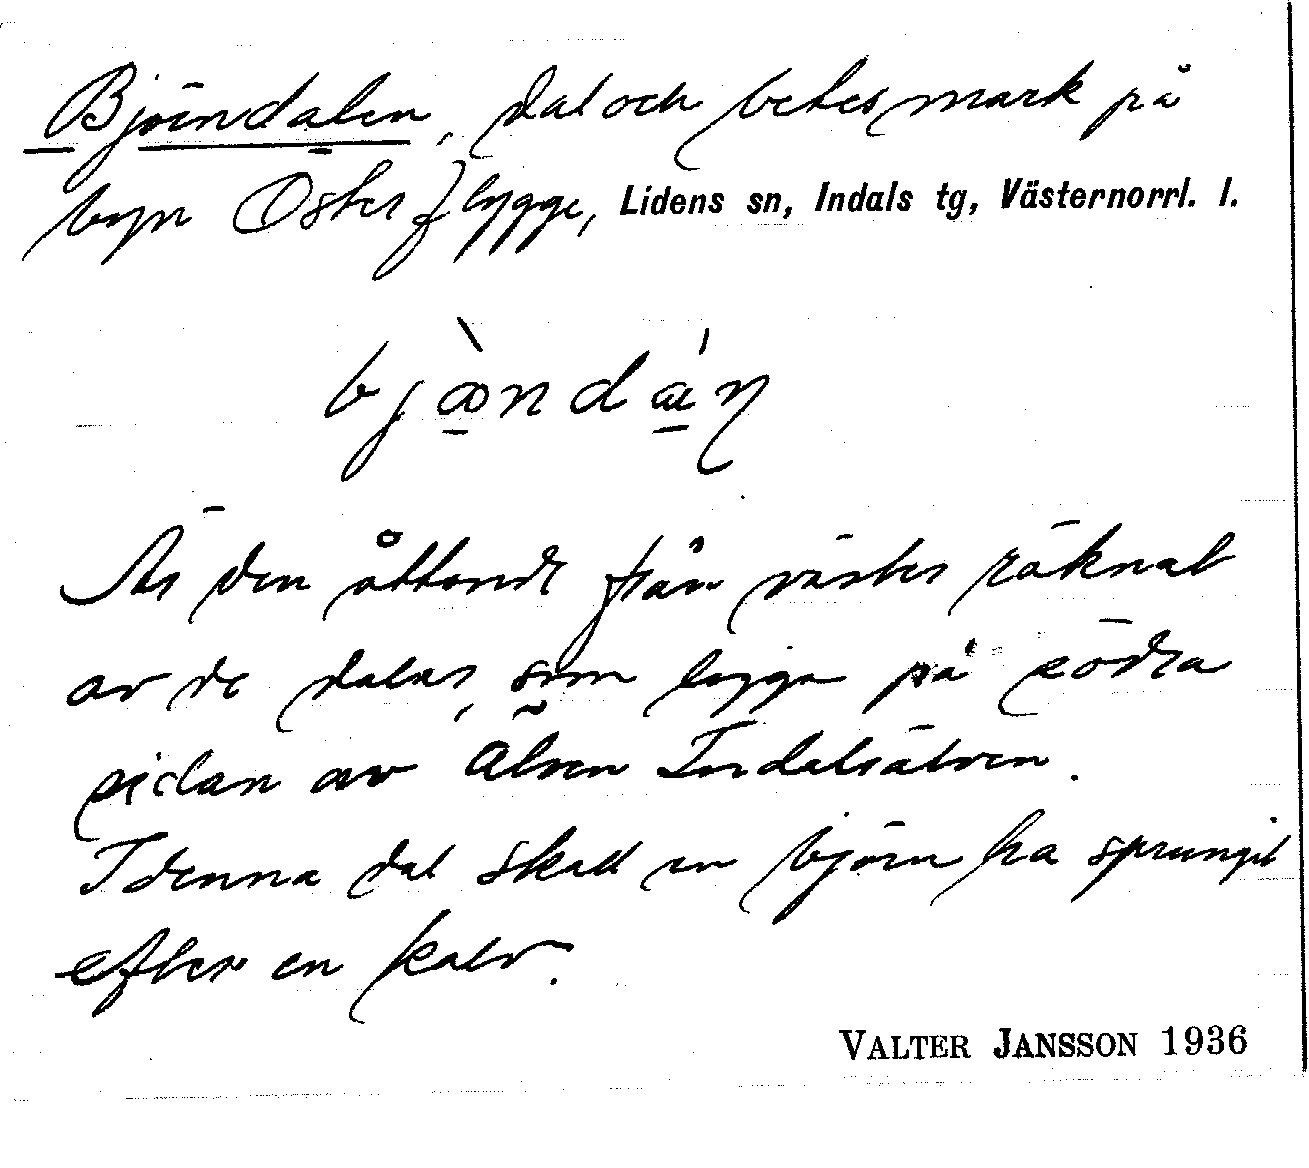 Björndalen, dal och betesmark på
byn Österflygge, Lidens sn, Indals tg, Västernorrl. l.
Är den åttonde från väster räknat
av de dalar, som ligga på södra
sidan av älven Indalsälven.
I denna dal skall en björn ha sprungit
efter en kalv.
VALTER JANSSON 1936